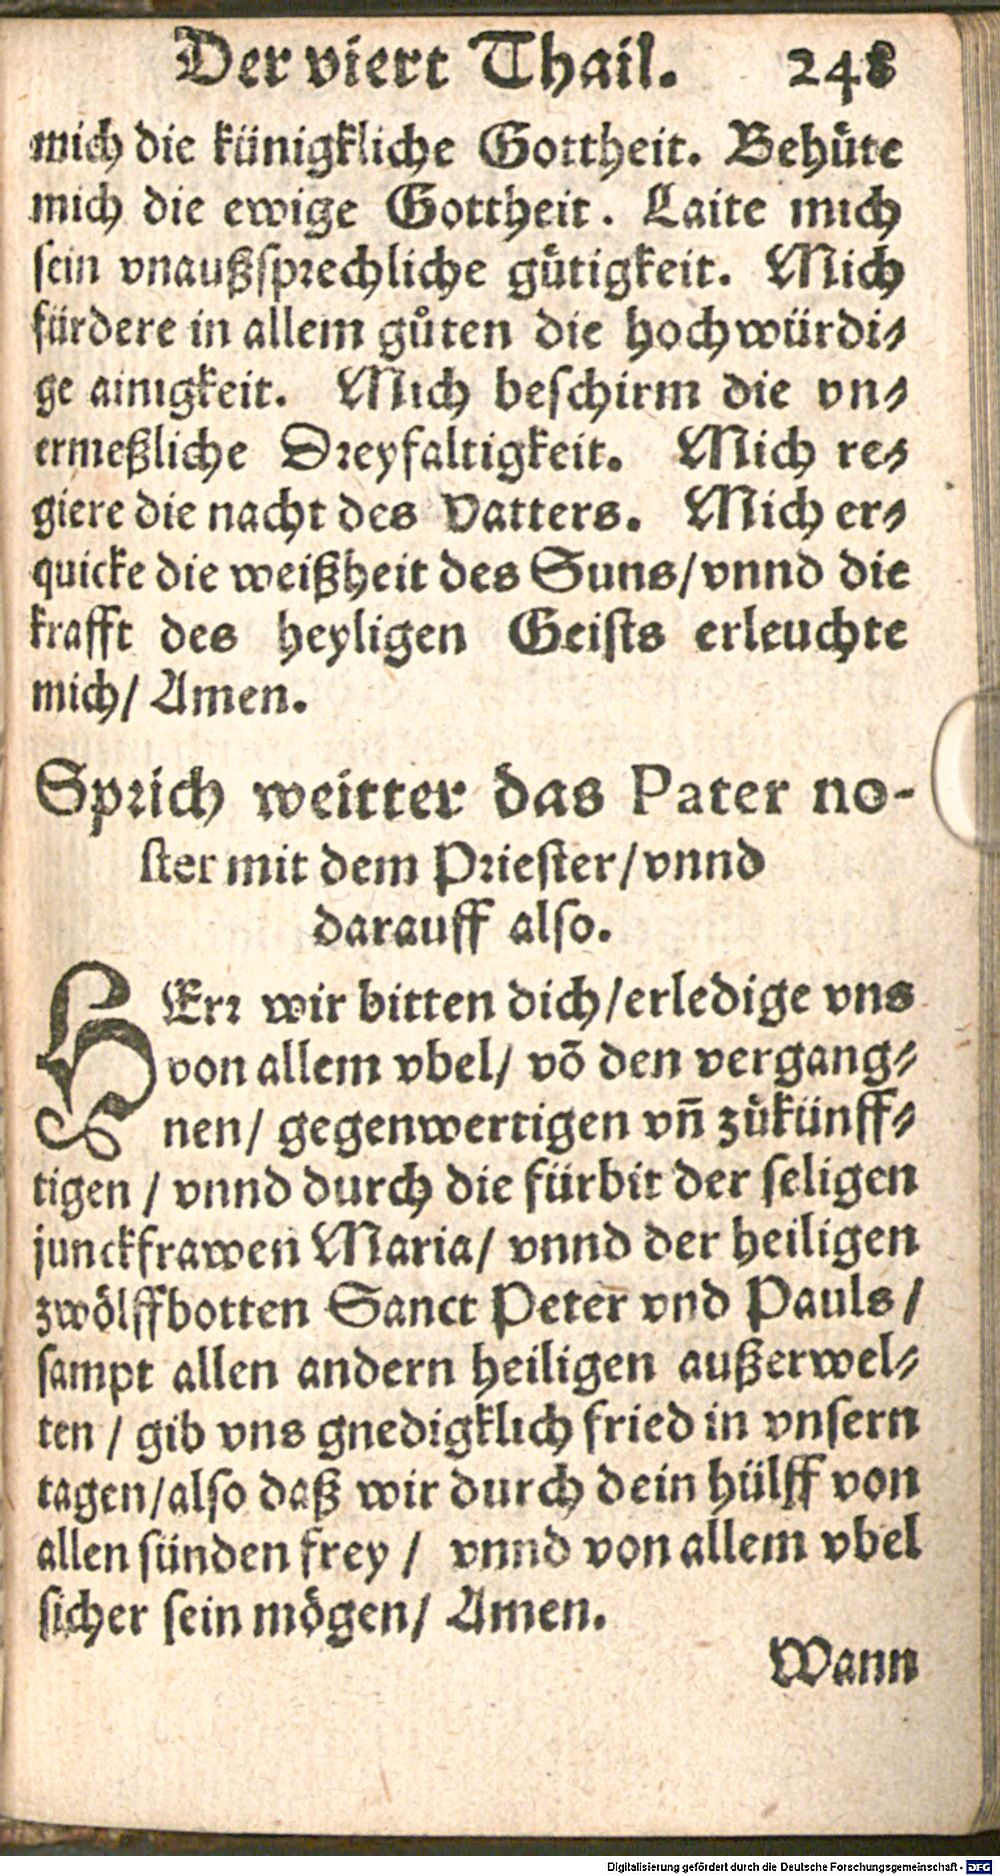 Der viert Thail. 248
mich die künigkliche Gottheit. Behuͤte
mich die ewige Gottheit. Laite mich
sein vnaußsprechliche guͤtigkeit. Mich
fürdere in allem guͦten die hochwürdi⸗
ge ainigkeit. Mich beschirm die vn⸗
ermeßliche Dreyfaltigkeit. Mich re⸗
giere die nacht des Vatters. Mich er⸗
quicke die weißheit des Suns/ vnnd die
krafft des heyligen Geists erleuchte
mich/ Amen.
Sprich weitter das Pater no-
ster mit dem Priester/ vnnd
darauff also.
HErr wir bitten dich/ erledige vns
von allem vbel/ võ den vergang⸗
nen/ gegenwertigen vñ zuͦkünff⸗
tigen / vnnd durch die fürbit der seligen
junckfrawen Maria/ vnnd der heiligen
zwoͤlffbotten Sanct Peter vnd Pauls /
sampt allen andern heiligen außerwel⸗
ten / gib vns gnedigklich fried in vnsern
tagen/ also daß wir durch dein hülff von
allen sünden frey / vnnd von allem vbel
sicher sein moͤgen/ Amen.
Wann
Digitalisierung gefördert durch die Deutsche Forschungsgemeinschaft - DFG